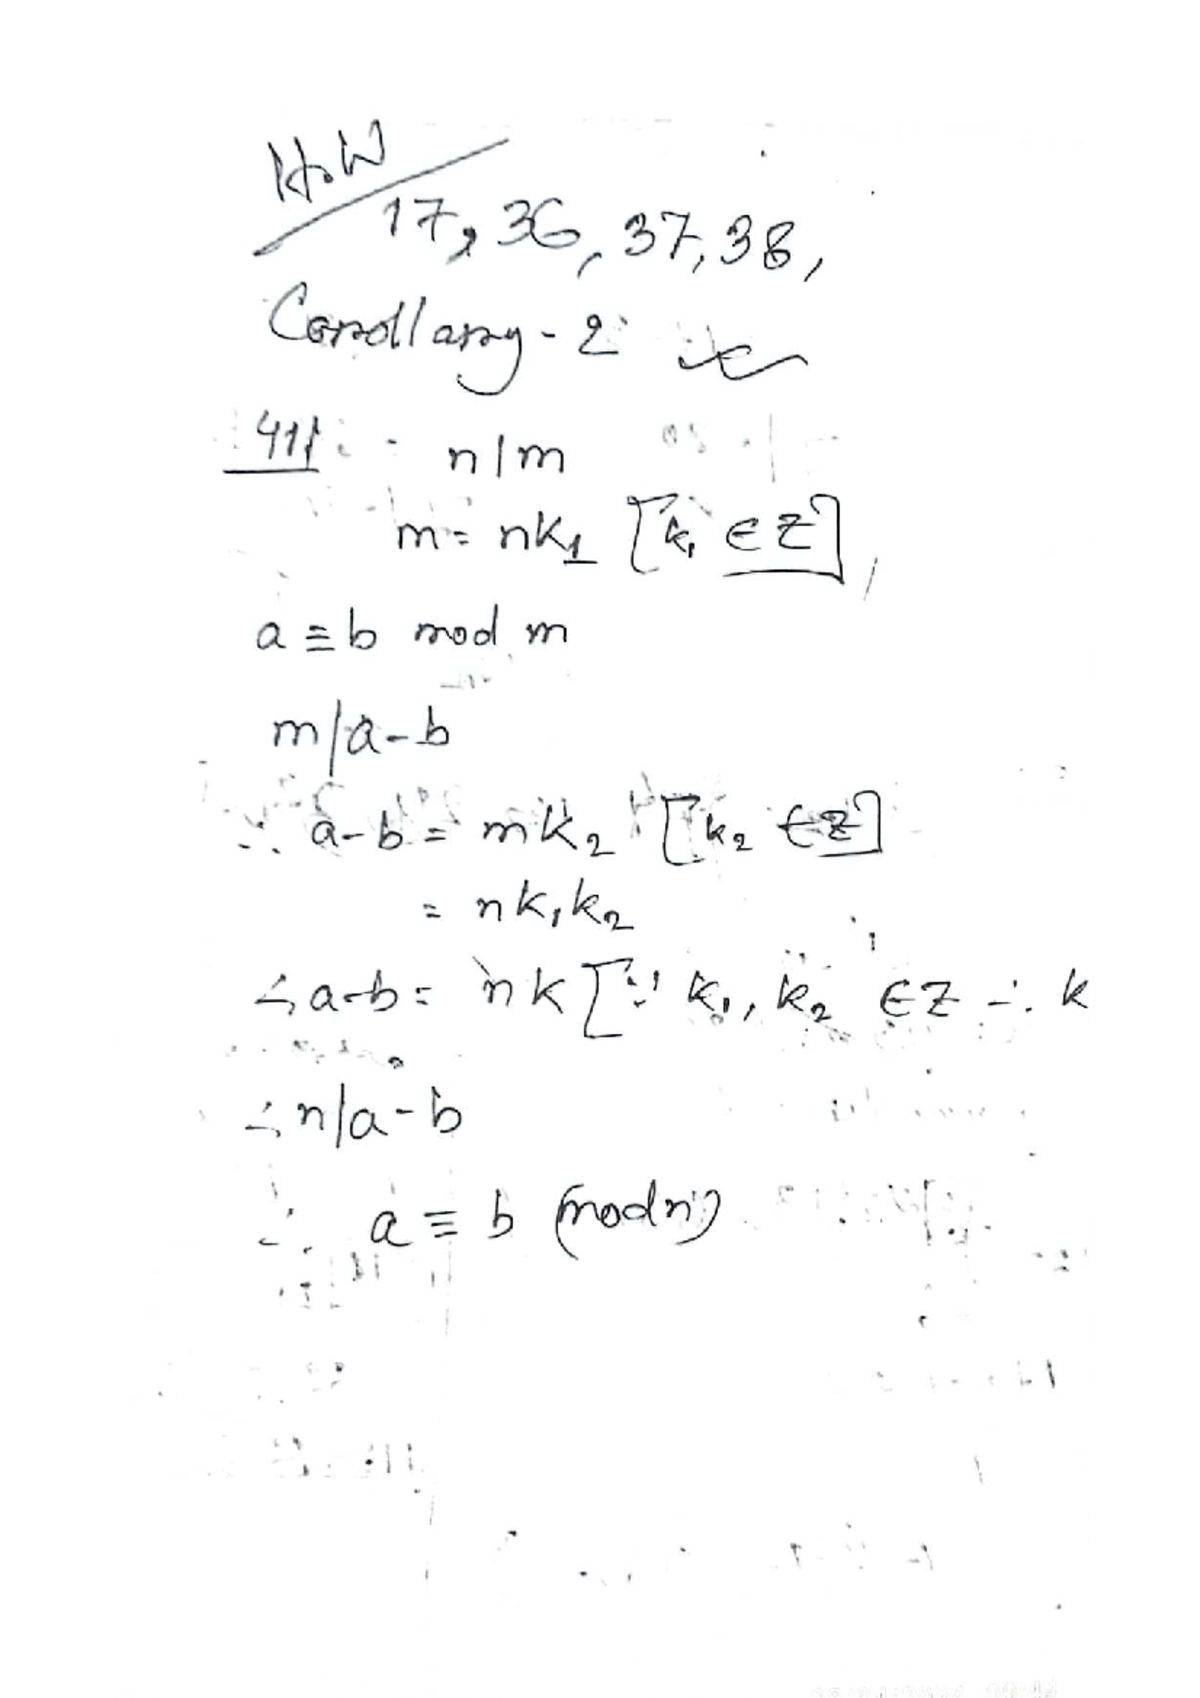 H.W
17, 36, 37, 38,
Corollary - 2
41)
n | m
m = nk₁ [k₁ ∈ Z],
a ≡ b mod m
m/a-b
∴ a-b = mk₂ [k₂ ∈ Z]
= nk₁k₂
∴ a-b = nk [∵ k₁, k₂ ∈ Z ∴ k
∴ n/a-b
∴ a ≡ b (mod n)